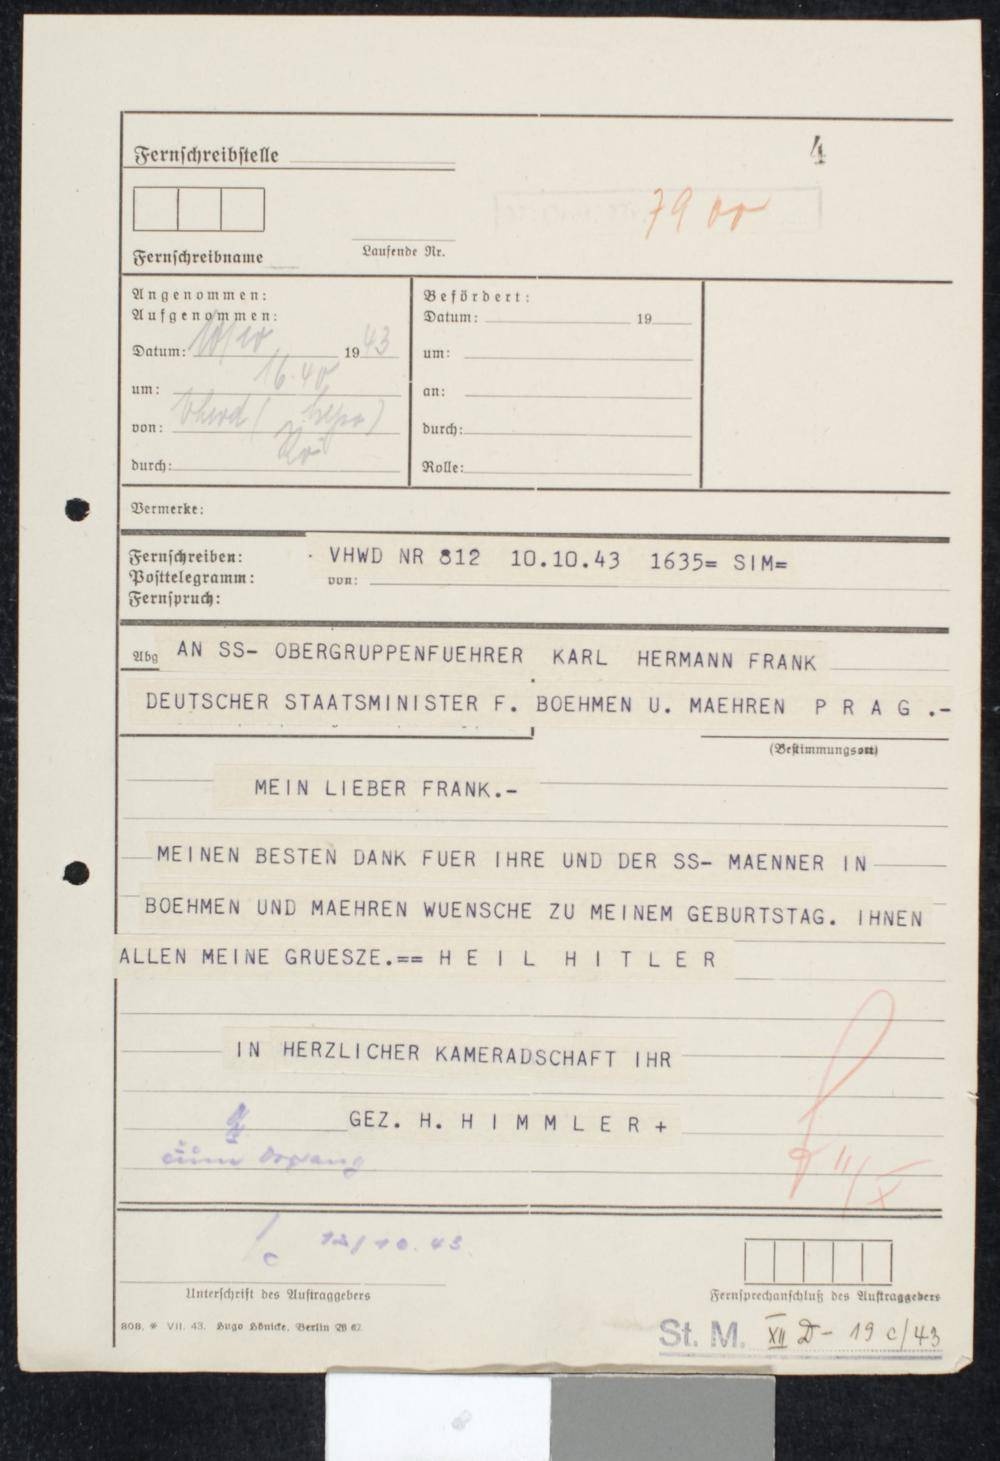 4
Fernschreibstelle
79 00
Fernschreibname
Laufende Nr.
Angenommen:
Aufgenommen:
Datum: 10/10 1943
um: 16.40
von:
durch:
Befördert:
Datum: 19
um:
an:
durch:
Rolle:
Vermerke:
Fernschreiben:
Posttelegramm:
Fernspruch:
VHWD NR 812 10.10.43 1635= SIM=
von:
Abg AN SS- OBERGRUPPENFUEHRER KARL HERMANN FRANK
DEUTSCHER STAATSMINISTER F. BOEHMEN U. MAEHREN P R A G .-
(Bestimmungsort)
MEIN LIEBER FRANK.-
MEINEN BESTEN DANK FUER IHRE UND DER SS- MAENNER IN
BOEHMEN UND MAEHREN WUENSCHE ZU MEINEM GEBURTSTAG. IHNEN
ALLEN MEINE GRUESZE.== H E I L H I T L E R
IN HERZLICHER KAMERADSCHAFT IHR
GEZ. H. H I M M L E R +
zum Vorgang
11/X
12/10.43.
Unterschrift des Auftraggebers
Fernsprechanschluß des Auftraggebers
808. * VII. 43. Hugo Hönicke, Berlin W 62
St. M. XII D - 19 c/43